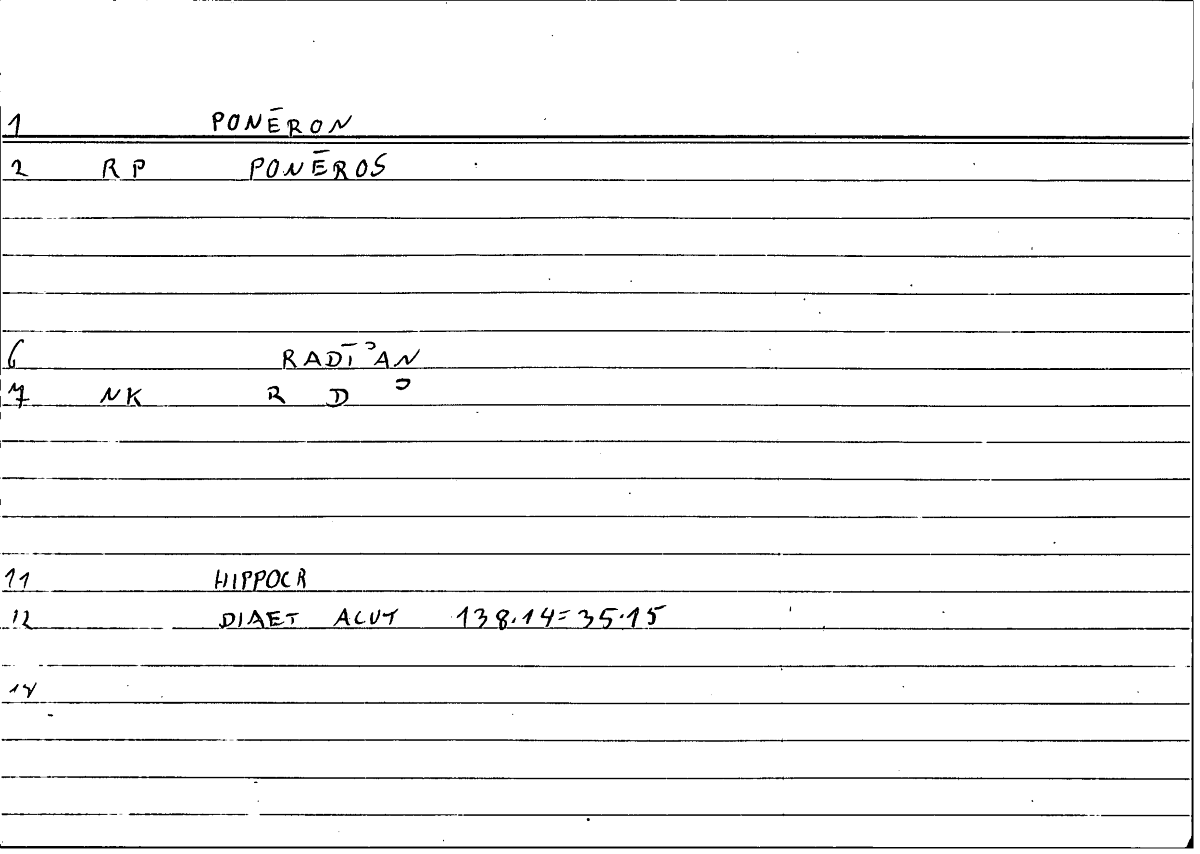 1 PONĒRON
2 RP PONĒROS
6 RADĪʾAN
7 NK R D ʾ
11 HIPPOCR
12 DIAET ACUT 138.14=35.15
14